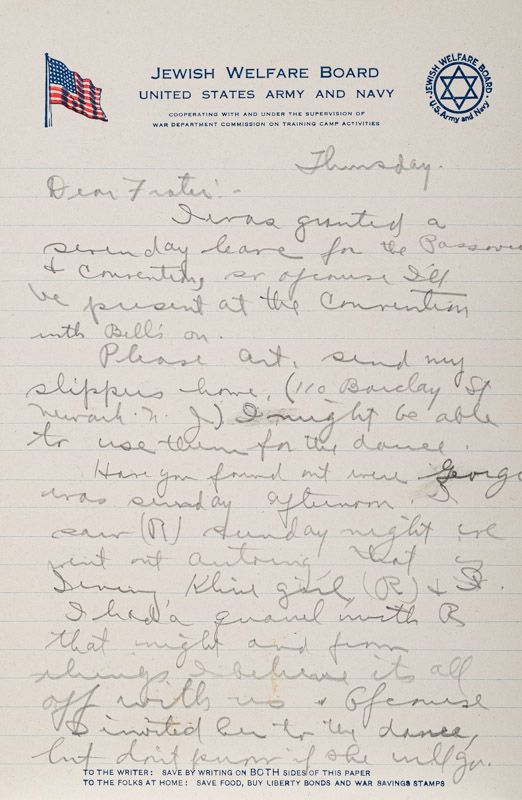 JEWISH WELFARE BOARD
UNITED STATES ARMY AND NAVY
COOPERATING WITH AND UNDER THE SUPERVISION OF
WAR DEPARTMENT COMMISSION ON TRAINING CAMP ACTIVITIES
JEWISH WELFARE BOARD
U.S. Army and Navy
Thursday.
Dear Frater:-
I was granted a
seven day leave for the Passover
& Convention, so ofcouse I'll
be present at the Convention
with Bell's on.
Please Art. send my
slippers home, (110 Barclay St
Newark. N. J) I might be able
to use them for the dance.
Have you found out were George
was sunday afternoon. I
saw (R) sunday night we
went out autoing, that is
Irving Kline girl, (R) & I.
I had a quarel with R
that night and from
things I believe its all
off with us. Ofcouse
I invited her to the dance,
but don't know if she will go.
TO THE WRITER: SAVE BY WRITING ON BOTH SIDES OF THIS PAPER
TO THE FOLKS AT HOME: SAVE FOOD, BUY LIBERTY BONDS AND WAR SAVINGS STAMPS